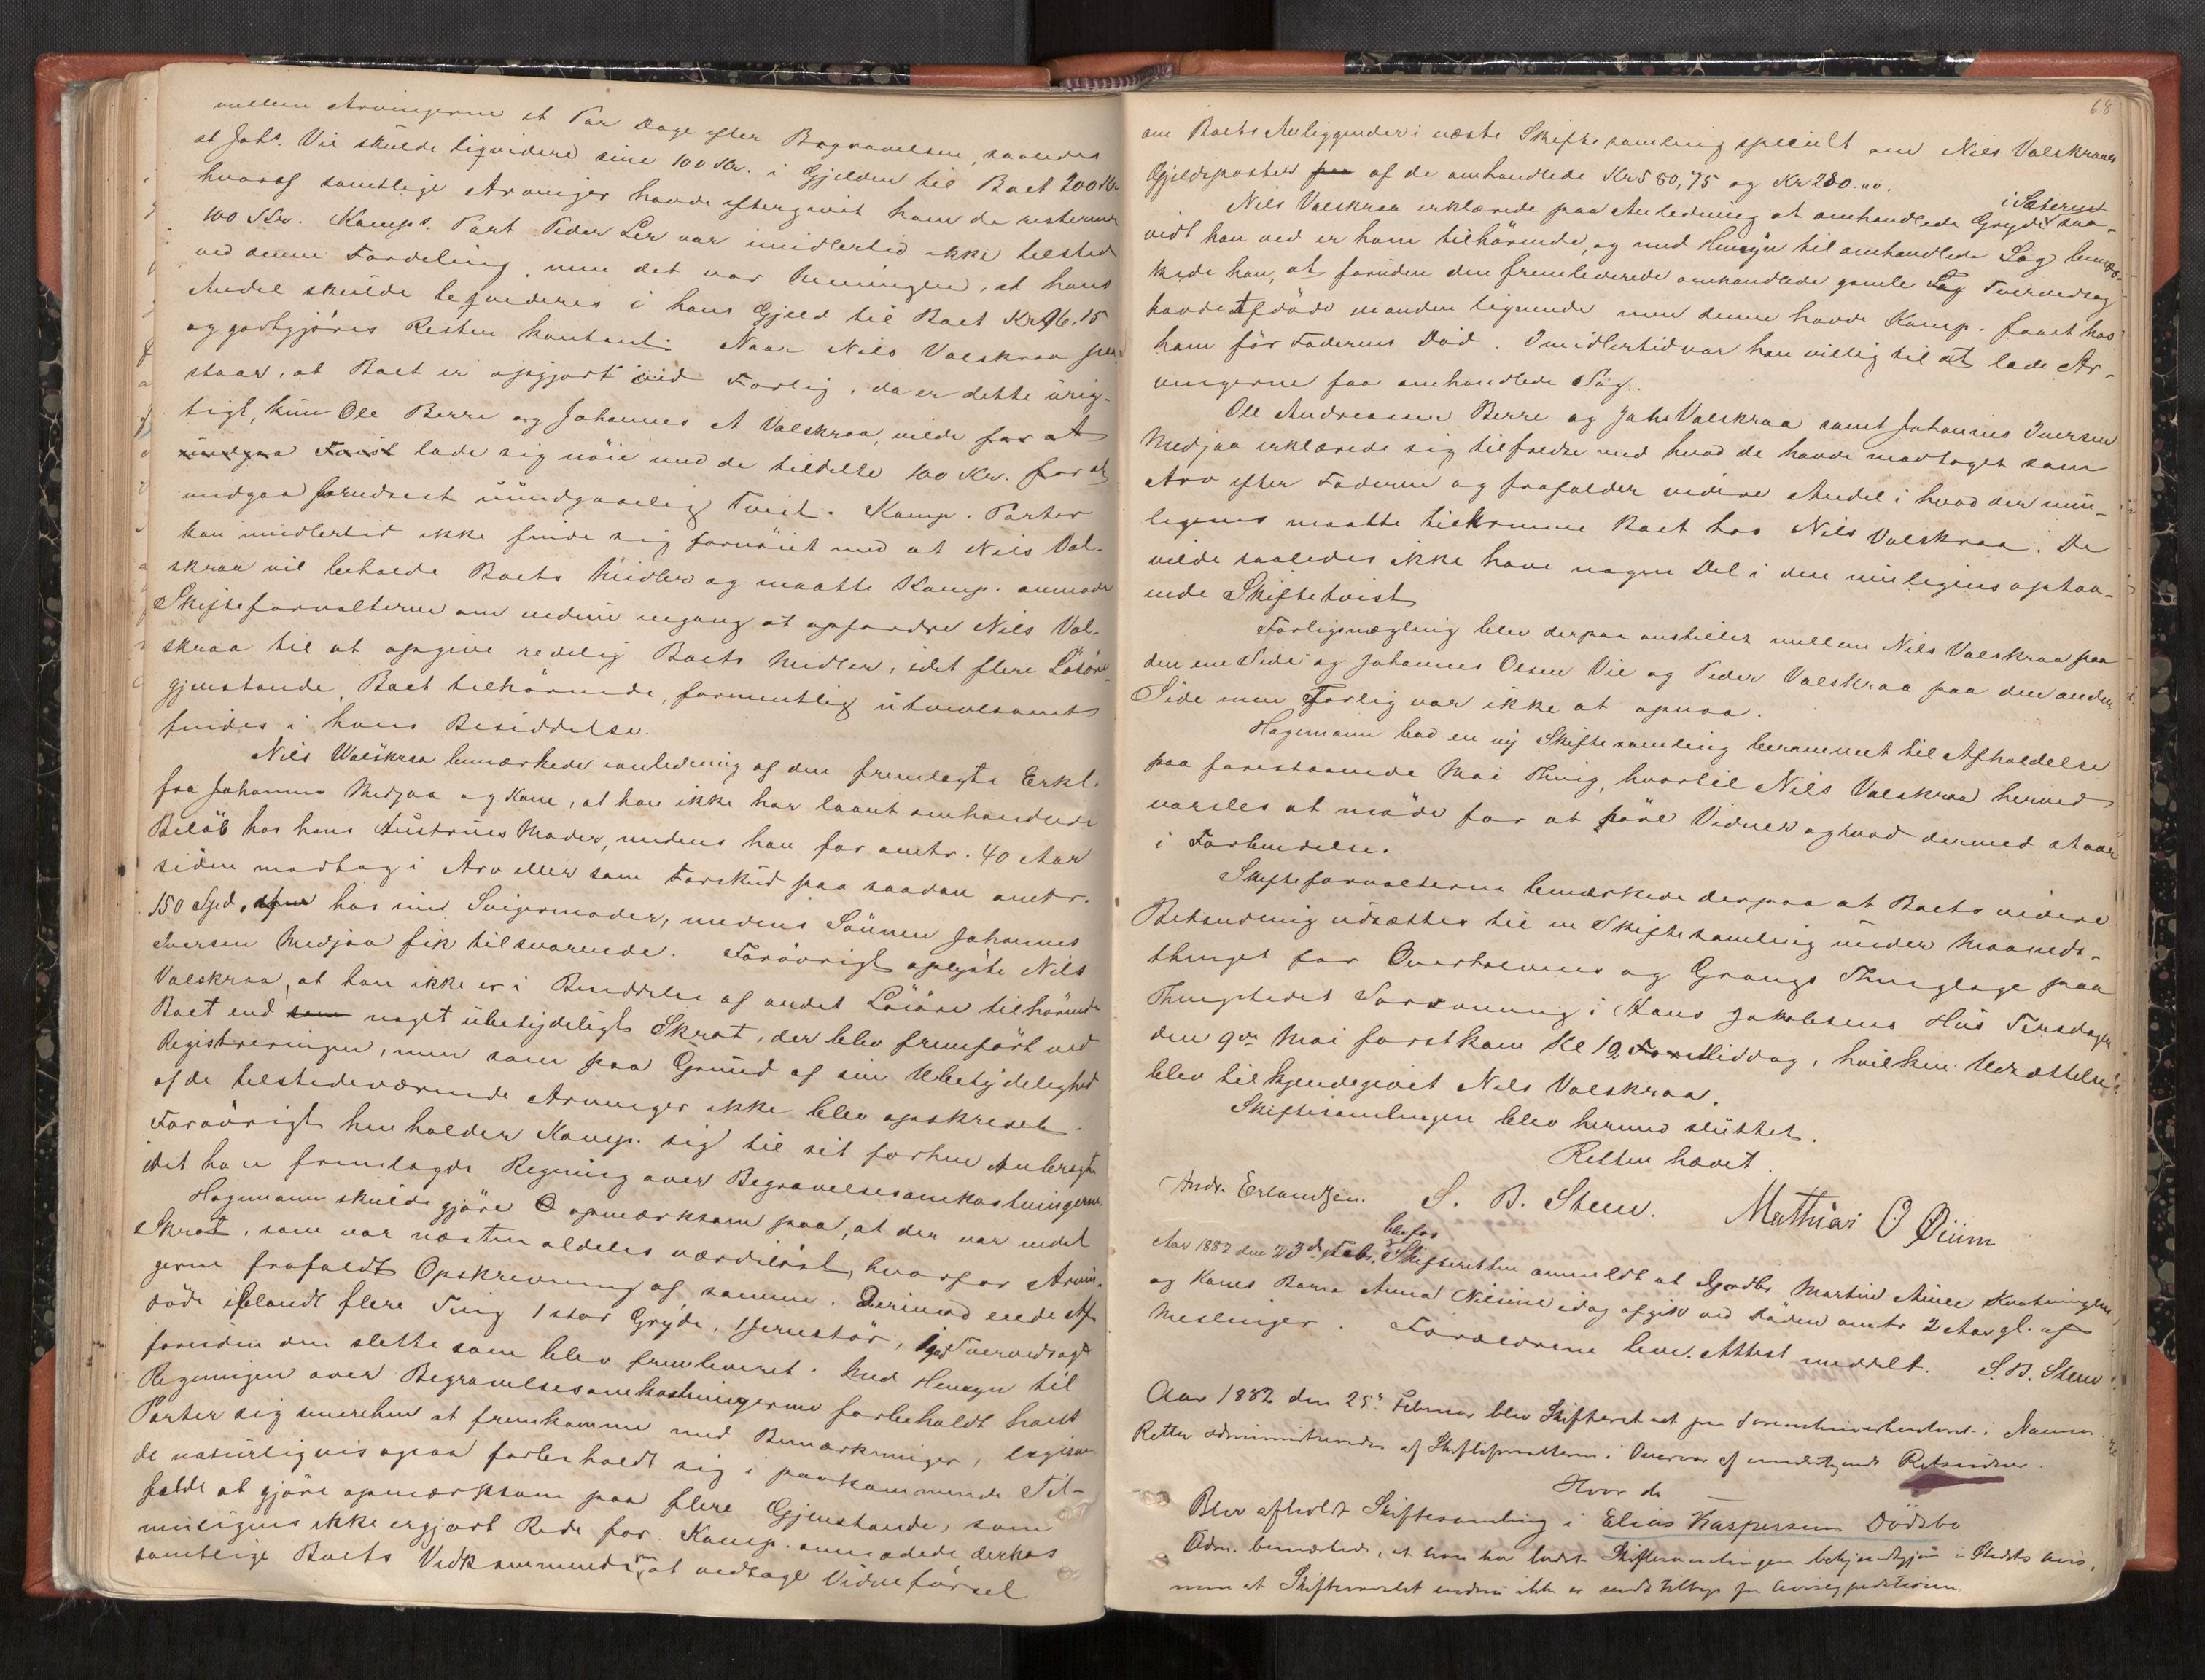 mellem Arvingerne et Par Dage efter Begravelsen, saaledes
at Johs. Vie skulde liqvidere sine 100 Kr. i Gjælden til Boet 200 Kr
hvoraf samtlige Arvinger havde eftergivet ham de resterende
100 Kr. Komps. Part Peder Ler var imidlertid ikke tilsted
ved denne Fordeling, men det var Meningen, at hans
Andel skulde liqvideres i hans Gjæld til Boet Kr 96,15
og godtgjöres Resten kontant. Naar Nils Valskraa paa
staar, at Boet er opgjort ved Forlig, da er dette urig-
tigt, kun Ole Berre og Johannes A Valskraa, vilde for at
undgaa Tvist lade sig nöie med de tildelte 100 Kr. for at
undgaa forudseet uundgaaelig Tvist. Komp. Parter
kan imidlertid ikke finde sig fornöiet med at Nils Val-
skraa vil beholde Boets Midler og maatte Komp. anmode
Skifteforvalteren om endnu engang at opfordre Nils Val-
skraa til at opgive redelig Boets Midler, idet flere Lösöre
gjenstande, Boet tilhörende, formentlig utvivlsomt
findes i hans Besiddelse.
Nils Walskraa bemærkede i anledning af den fremlagte Erkl.
fra Johannes Medjaa og Kone, at han ikke har laant omhandlede
Belöb hos hans Hustrues Moder, medens han for omtr. 40 Aar
siden modtog i Arv eller som Forskud paa saadan omtr.
150 Spd, hos sin Svigermoder, medens Sönnen Johannes
Iversen Medjaa fik tilsvarende. Forövrigt oplyste Nils
Valskraa, at han ikke er i Besiddelse af andet Lösöre tilhörende
Boet end som noget ubetydeligt Skrot, der blev fremfört ved
Registreringen, men som paa Grund af sin Ubetydelighed
af de tilstedeværende Arvinger ikke blev opskrevet.
Forövrigt henholder Komp. sig til sit forhen Anbragte
idet han fremlagde Regning over Begravelsesomkostningerne.
Hagemann skulde gjöre opmærksom paa, at der var endel
Skrot, som var næsten aldeles værdilöst, hvorfor Arvin-
gerne frafaldt Opskrivning af samme. Derimod eiede Af
döde iblandt flere Ting 1 stor Gryde, 1 Jernstör, 1 god Tvervedsag
foruden den slette som blev fremleveret. Med Hensyn til
Regningen over Begravelsesomkostningerne forbeholdt hans
Parter sig senerehen at fremkomme med Bemærkninger, ligesom
de naturligvis ogsaa forbeholdt sig i paakommende Til-
fælde at gjöre opmærksom paa flere Gjenstande, som
muligens ikke er gjort Rede for. Komp. anmodede derhos
samtlige Boets Vedkommende om at vedtage Vidneförsel
68
om Boets Anliggender i næste Skiftesamling specielt om Nils Valskraas
Gjældsposter paa af de omhandlede Kr 580,75 og Kr 280.00.
i Sæteren
Nils Valskraa erklærede paa Anledning at omhandlede Gryde saa-
vidt han ved er ham tilhörende, og med Hensyn til omhandlede Sag bemær-
kede han, at foruden den fremleverede omhandlede gamle Sag Tvervedsag
havde Afdöde en anden lignende men denne havde Komp. faaet hos
ham för Faderens Död. Imidlertid var han villig til at lade Ar-
vingerne faa omhandlede Sag.
Ole Andreassen Berre og Johs Valskraa samt Johannes Iversen
Medjaa erklærede sig tilfredse med hvad de havde modtaget som
Arv efter Faderen og frafalder videre Andel i hvad der mu-
ligens maatte tilkomme Boet hos Nils Valskraa. De
vilde saaledes ikke have nogen Del i den muligens opstaa-
ende Skiftetvist
Forligsmægling blev derpaa anstillet mellem Nils Valskraa paa
den ene Side og Johannes Olsen Vie og Peder Valskraa paa den anden
Side men Forlig var ikke at opnaa.
Hagemann bad en ny Skiftesamling berammet til Afholdelse
paa forestaaende Mai Thing, hvortil Nils Valskraa herved
varsles at möde for at före Vidner og hvad dermed staar
i Forbindelse.
Skifteforvalteren bemærkede derpaa at Boets videre
Behandling udsættes til en Skiftesamling under Maaneds-
thinget for Overhalvens og Grongs Thinglage paa
Thingstedet Sorsanning i Hans Jakobsens Hus Tirsdagen
den 9de Mai förstkom Kl 12 Middag, hvilken Udsættelse
blev tilkjendegivet Nils Valskraa.
Skiftesamlingen blev hermed sluttet.
Retten hævet.
Andr. Erlandsen. S. B. Steen. Mathias O Öium
blev for
Aar 1882 den 23de Febr. Skifteretten anmeldt at Martin Kvatningens
og Kones Barn Anna Nilsine idag afgik ved Döden omtr 2 Aar gl. af
Meslinger. Forældrene lever. Attest meddelt. S.B. Steen
Aar 1882 den 25de Februar blev Skifteret sat paa Sorenskriverkontoret i Namsos
Retten administreredes af Skifteforvalteren i Overvær af undertegnede Retsvidner.
Hvor da
Blev afholdt Skiftesamling i Elias Kaspersens Dödsbo
Adm. bemærkede, at han har ladet Skiftesamlingen bekjendtgjöre i Stedets Avis,
men at Skiftevarslet endnu ikke er sendt tilbage fra Avisexpeditionen.